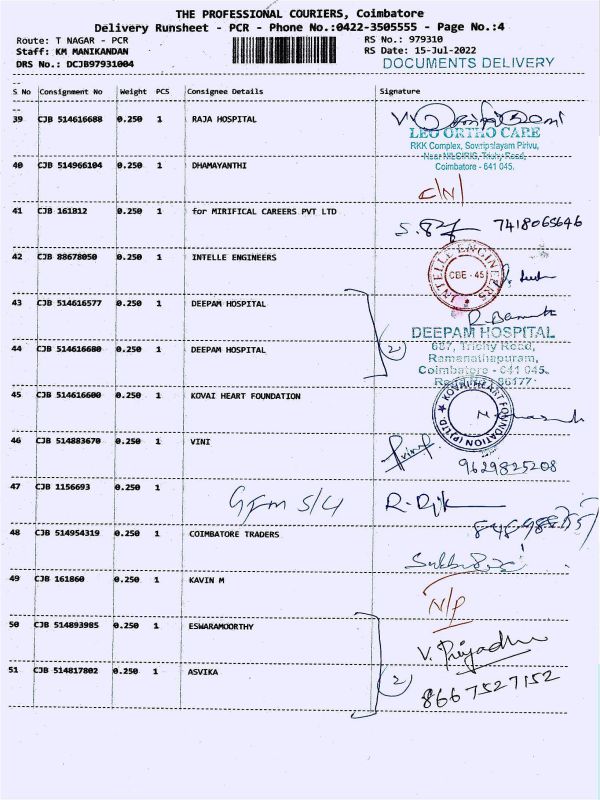 THE PROFESSIONAL COURIERS, Coimbatore
Delivery Runsheet - PCR - Phone No.:0422-3505555 - Page No.:4
Route: T NAGAR - PCR RS No.: 979310
Staff: KM MANIKANDAN RS Date: 15-Jul-2022
DRS No.: DCJB97931004 DOCUMENTS DELIVERY
S No Consignment No Weight PCS Consignee Details Signature
39 CJB 514616688 0.250 1 RAJA HOSPITAL
LEO ORTHO CARE
RKK Complex, Sowripalayam Pirivu,
Near NILGIRIS, Trichy Road,
Coimbatore - 641 045.
40 CJB 514966104 0.250 1 DHAMAYANTHI
C/N
41 CJB 161812 0.250 1 for MIRIFICAL CAREERS PVT LTD
7418065646
42 CJB 88678050 0.250 1 INTELLE ENGINEERS
INTELLE ENGINEERS
CBE - 45
43 CJB 514616577 0.250 1 DEEPAM HOSPITAL
DEEPAM HOSPITAL
687, Trichy Road,
44 CJB 514616680 0.250 1 DEEPAM HOSPITAL
(2)
Ramanathapuram,
Coimbatore - 641 045.
45 CJB 514616600 0.250 1 KOVAI HEART FOUNDATION
KOVAI HEART FOUNDATION (P) LTD.
46 CJB 514883670 0.250 1 VINI
9629825208
47 CJB 1156693 0.250 1
48 CJB 514954319 0.250 1 COIMBATORE TRADERS
49 CJB 161860 0.250 1 KAVIN M
N/P
50 CJB 514893985 0.250 1 ESWARAMOORTHY
51 CJB 514817802 0.250 1 ASVIKA
(2)
8667527152